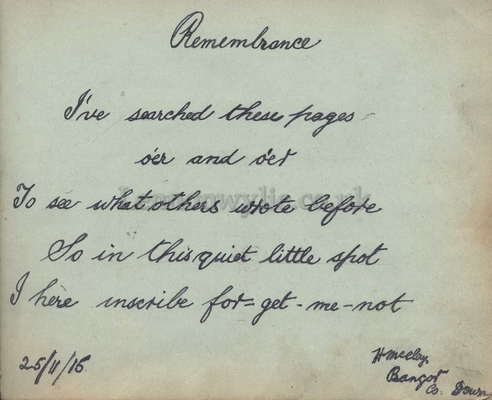 Remembrance
I've searched these pages
o'er and o'er
To see what others wrote before
So in this quiet little spot
I here inscribe for-get-me-not
25/11/15
Bangor
Co. Down